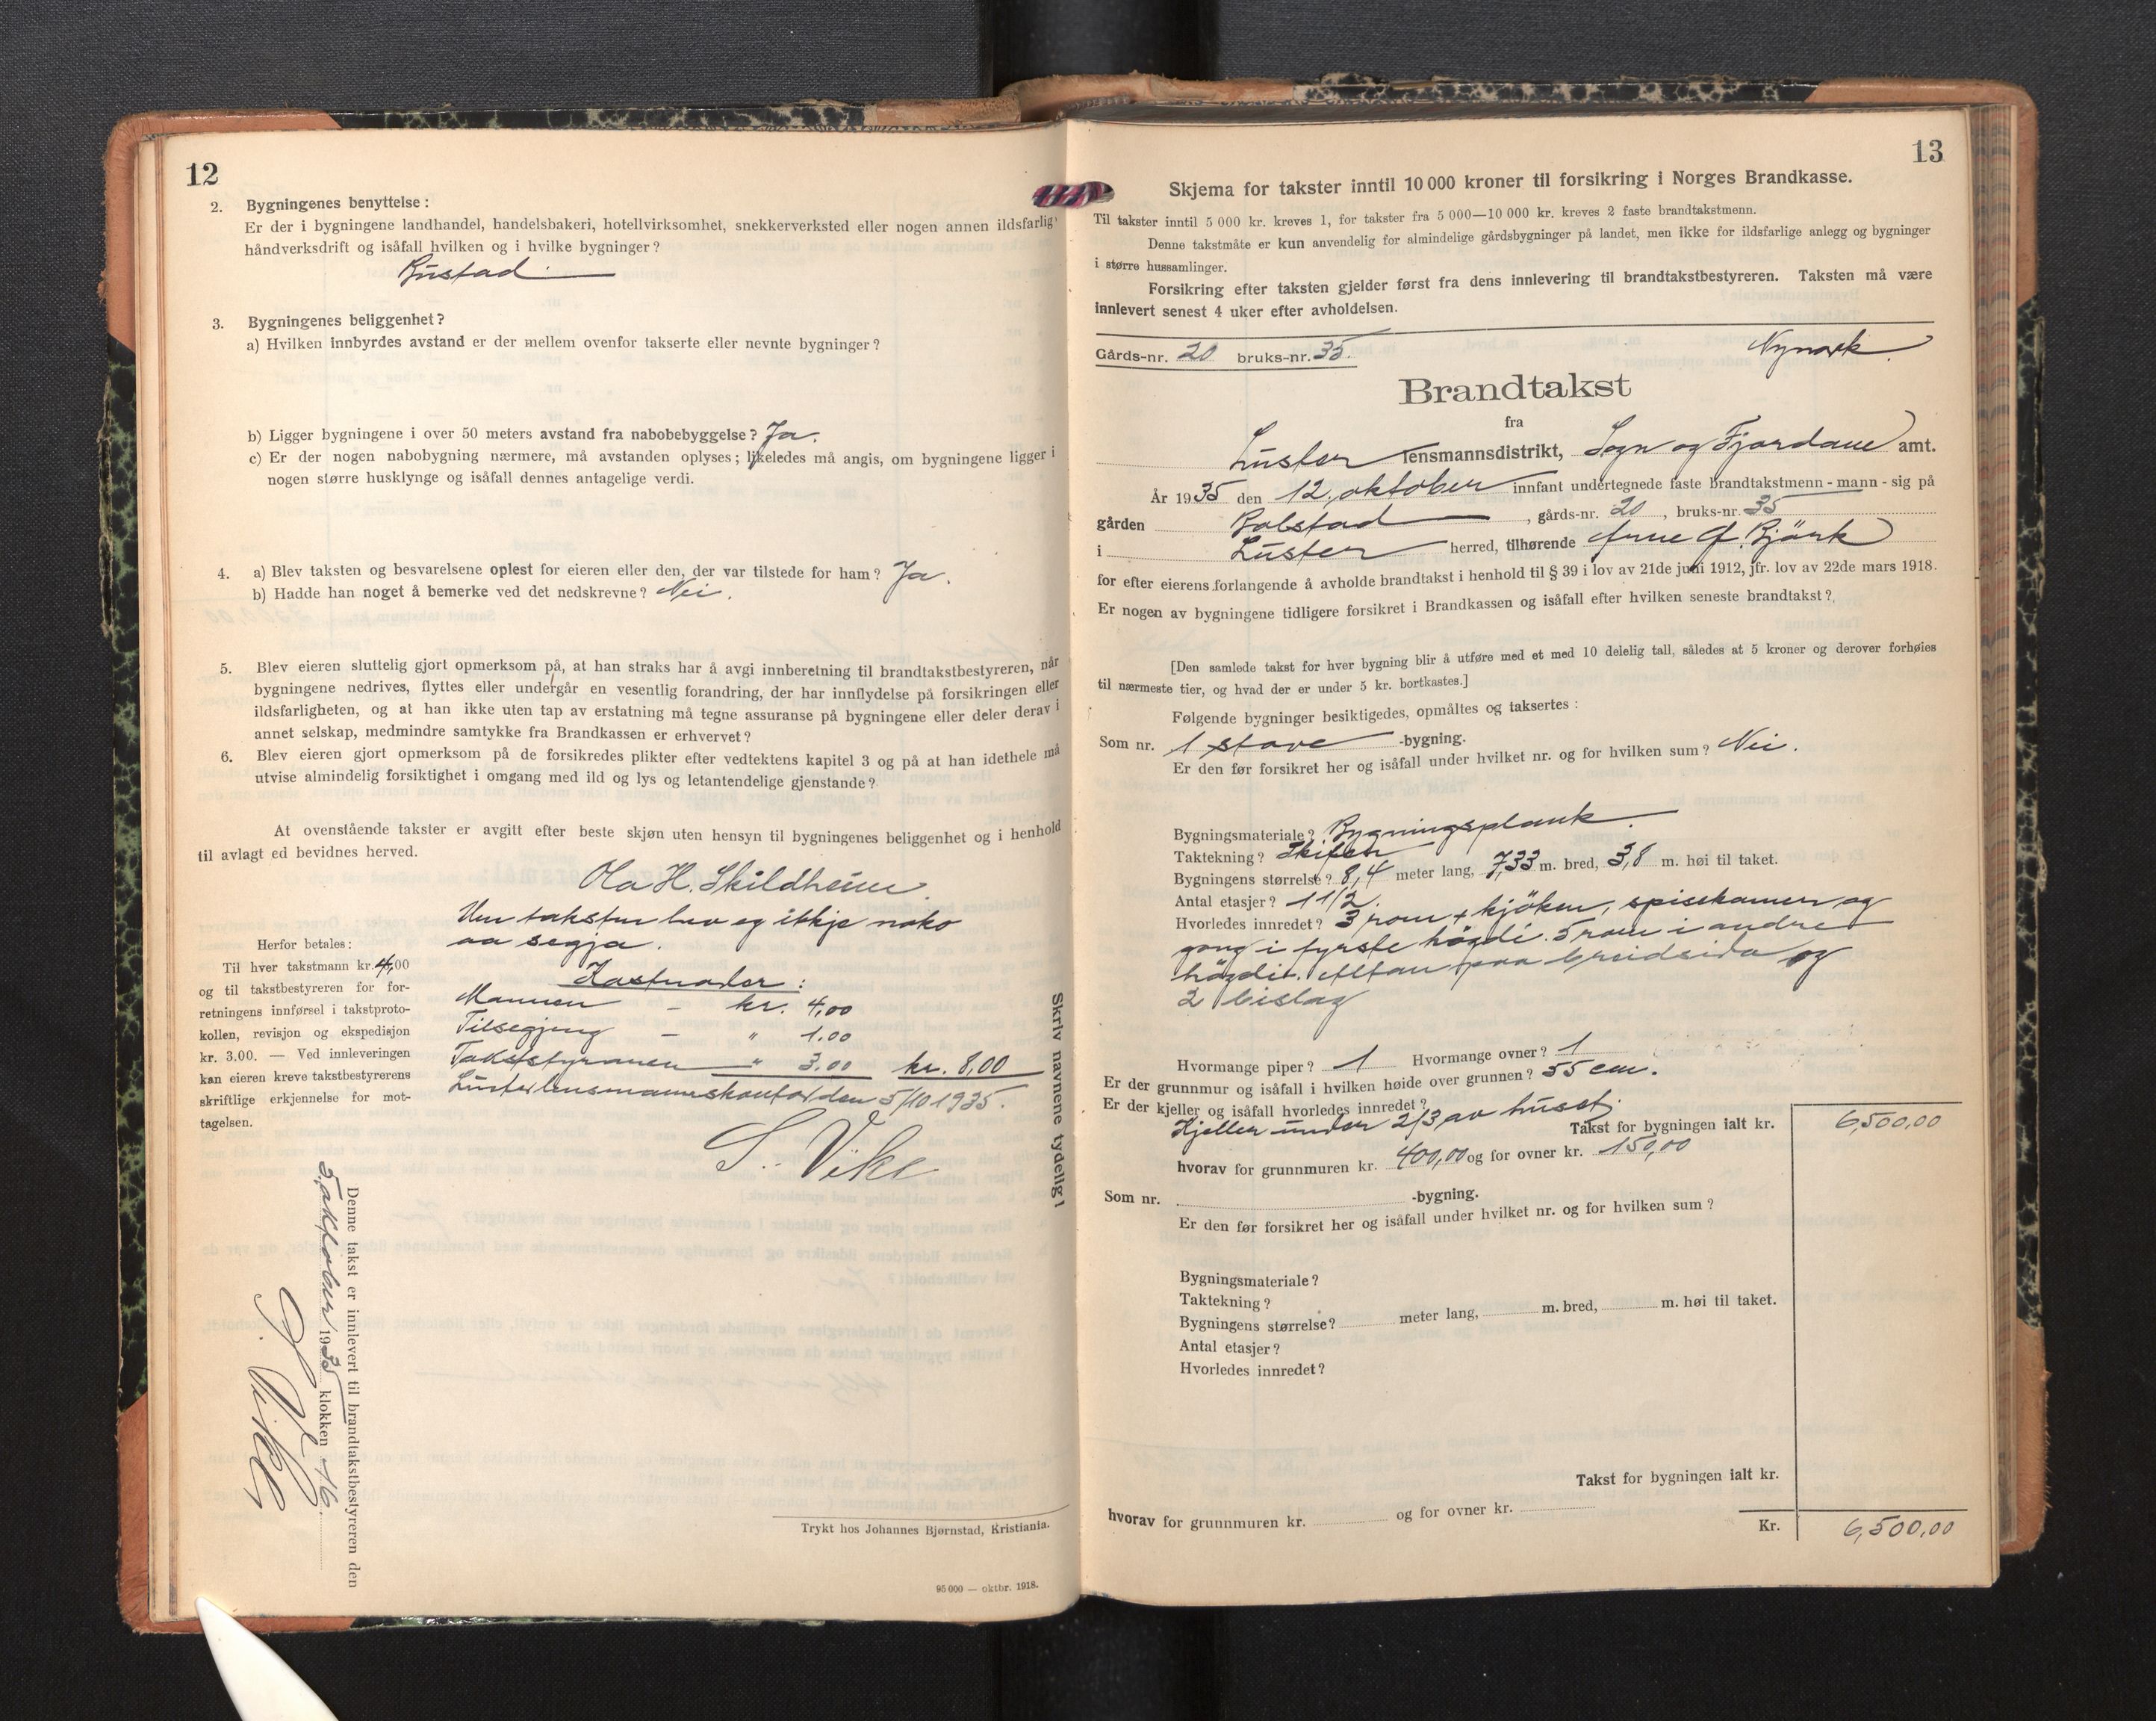 12
2. Bygningenes benyttelse:
Er der i bygningene landhandel, handelsbakeri, hotellvirksomhet, snekkerverksted eller nogen annen ildsfarlig
håndverksdrift og isåfall hvilken og i hvilke bygninger?
Bustad
3. Bygningenes beliggenhet?
a) Hvilken innbyrdes avstand er der mellem ovenfor takserte eller nevnte bygninger?
b) Ligger bygningene i over 50 meters avstand fra nabobebyggelse? Ja.
c) Er der nogen nabobygning nærmere, må avstanden oplyses; likeledes må angis, om bygningene ligger i
nogen større husklynge og isåfall dennes antagelige verdi.
4. a) Blev taksten og besvarelsene oplest for eieren eller den, der var tilstede for ham? Ja.
b) Hadde han noget å bemerke ved det nedskrevne? Nei.
5. Blev eieren sluttelig gjort opmerksom på, at han straks har å avgi innberetning til brandtakstbestyreren, når
bygningene nedrives, flyttes eller undergår en vesentlig forandring, der har innflydelse på forsikringen eller
ildsfarligheten, og at han ikke uten tap av erstatning må tegne assuranse på bygningene eller deler derav i
annet selskap, medmindre samtykke fra Brandkassen er erhvervet?
6. Blev eieren gjort opmerksom på de forsikredes plikter efter vedtektens kapitel 3 og på at han idethele må
utvise almindelig forsiktighet i omgang med ild og lys og letantendelige gjenstande?
At ovenstående takster er avgitt efter beste skjøn uten hensyn til bygningenes beliggenhet og i henhold
til avlagt ed bevidnes herved.
Ola H. Skildheim
Um taksten hev eg ikkje noko
aa segja.
Kostnader:
Mannen – kr. 4,00
Tilsegjing – " 1.00
Takststyraren " 3.00 kr. 8,00
Luster lensmannskontor den 5/10 1935.
S. Vike
Herfor betales:
Til hver takstmann kr. 4,00
og til takstbestyreren for for-
retningens innførsel i takstproto-
kollen, revisjon og ekspedisjon
kr. 3.00. — Ved innleveringen
kan eieren kreve takstbestyrerens
skriftlige erkjennelse for mot-
tagelsen.
Denne takst er innlevert til brandtakstbestyreren den
5. oktober 1935 klokken 16.
S. Vike
Skriv navnene tydelig!
Trykt hos Johannes Bjørnstad, Kristiania.
95 000 — oktbr. 1918.
13
Skjema for takster inntil 10 000 kroner til forsikring i Norges Brandkasse.
Til takster inntil 5 000 kr. kreves 1, for takster fra 5 000—10 000 kr. kreves 2 faste brandtakstmenn.
Denne takstmåte er kun anvendelig for almindelige gårdsbygninger på landet, men ikke for ildsfarlige anlegg og bygninger
i større hussamlinger.
Forsikring efter taksten gjelder først fra dens innlevering til brandtakstbestyreren. Taksten må være
innlevert senest 4 uker efter avholdelsen.
Gårds-nr. 20 bruks-nr. 35.
Nymark.
Brandtakst
fra
Luster lensmannsdistrikt, Sogn og Fjordane amt.
År 1935 den 12. oktober innfant undertegnede faste brandtakstmenn - mann - sig på
gården Bolstad, gårds-nr. 20, bruks-nr. 35
i Luster herred, tilhørende Anne G. Björk
for efter eierens forlangende å avholde brandtakst i henhold til § 39 i lov av 21de juni 1912, jfr. lov av 22de mars 1918.
Er nogen av bygningene tidligere forsikret i Brandkassen og isåfall efter hvilken seneste brandtakst?
[Den samlede takst for hver bygning blir å utføre med et med 10 delelig tall, således at 5 kroner og derover forhøies
til nærmeste tier, og hvad der er under 5 kr. bortkastes.]
Følgende bygninger besiktigedes, opmåltes og taksertes:
Som nr. 1 stove -bygning.
Er den før forsikret her og isåfall under hvilket nr. og for hvilken sum? Nei.
Bygningsmateriale? Bygningsplank.
Taktekning? Skifer
Bygningens størrelse? 8,4 meter lang, 7,33 m. bred, 3,8 m. høi til taket.
Antal etasjer? 1 1/2.
Hvorledes innredet? 3 rom + kjöken, spisekamer og
gang i fyrste högdi. 5 rom i andre
högdi. Altan paa breidsida og
2 bislag
Hvormange piper? 1 Hvormange ovner? 1
Er der grunnmur og isåfall i hvilken høide over grunnen? 55 cm.
Er der kjeller og isåfall hvorledes innredet?
Kjeller under 2/3 av huset.
Takst for bygningen ialt kr. 6,500,00
hvorav for grunnmuren kr. 400,00 og for ovner kr. 150,00
Som nr. -bygning.
Er den før forsikret her og isåfall under hvilket nr. og for hvilken sum?
Bygningsmateriale?
Taktekning?
Bygningens størrelse? meter lang, m. bred, m. høi til taket.
Antal etasjer?
Hvorledes innredet?
Takst for bygningen ialt kr.
hvorav for grunnmuren kr. og for ovner kr.
Kr. 6,500,00